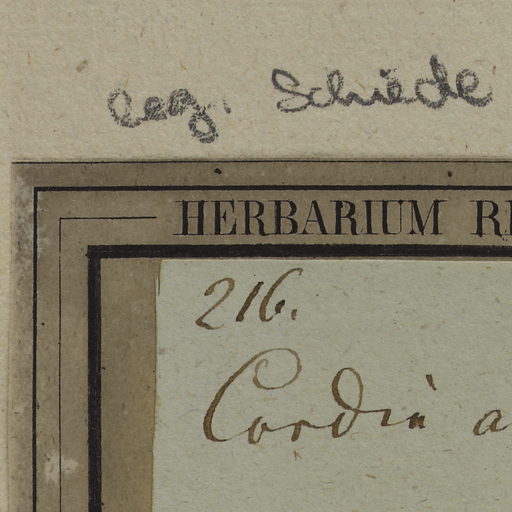 leg. Schiede
HERBARIUM
216.
Cordia a